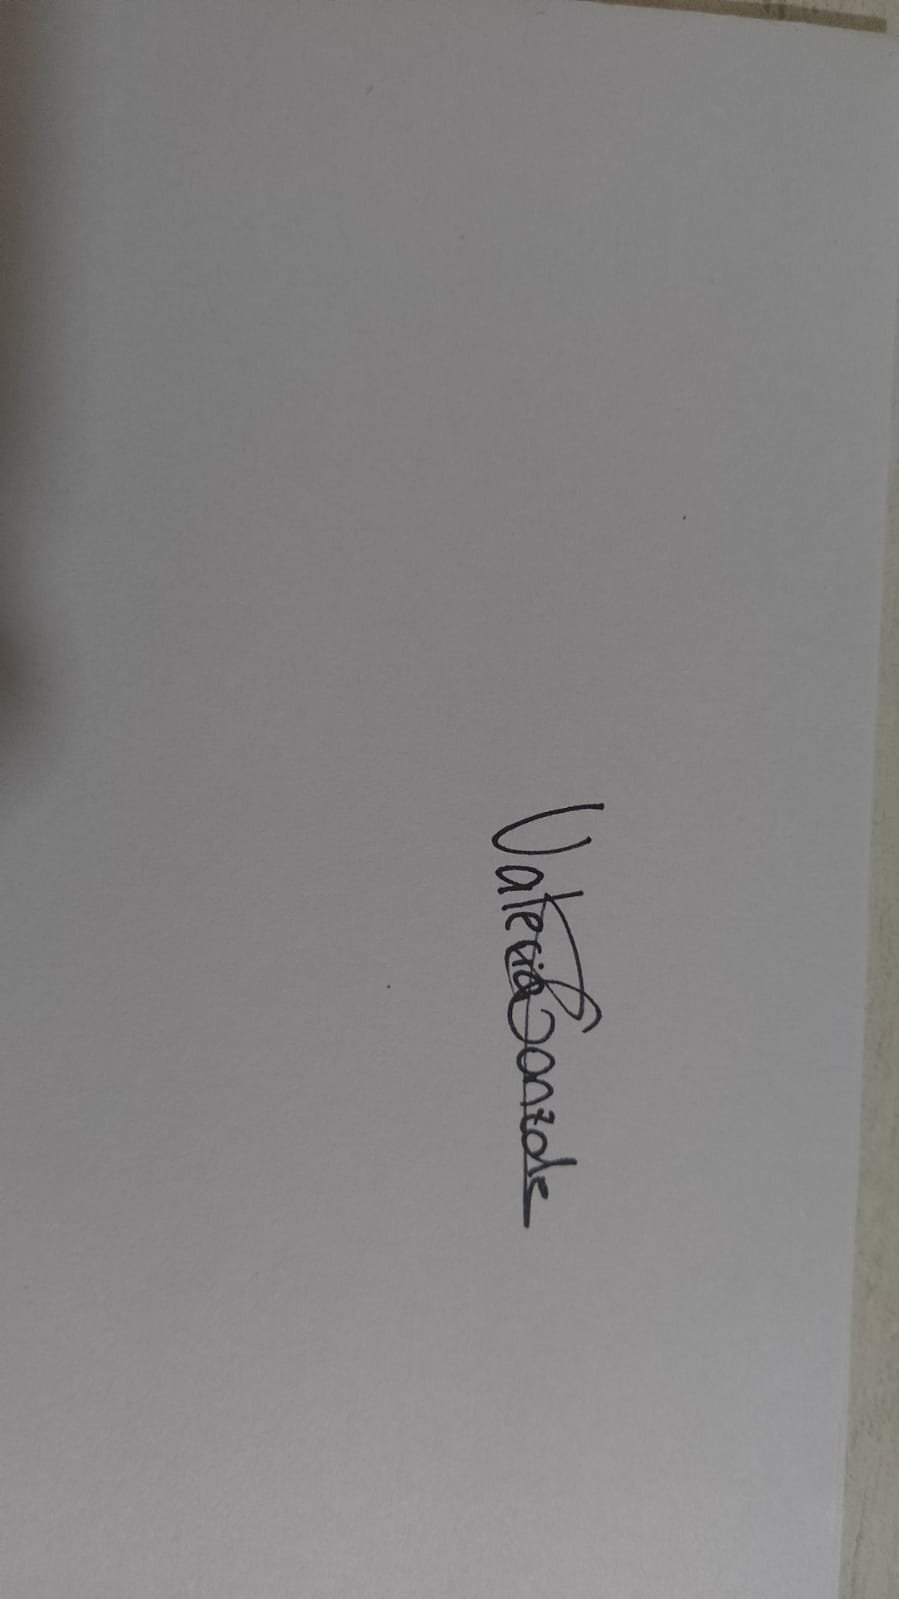 Valeria Gonzale